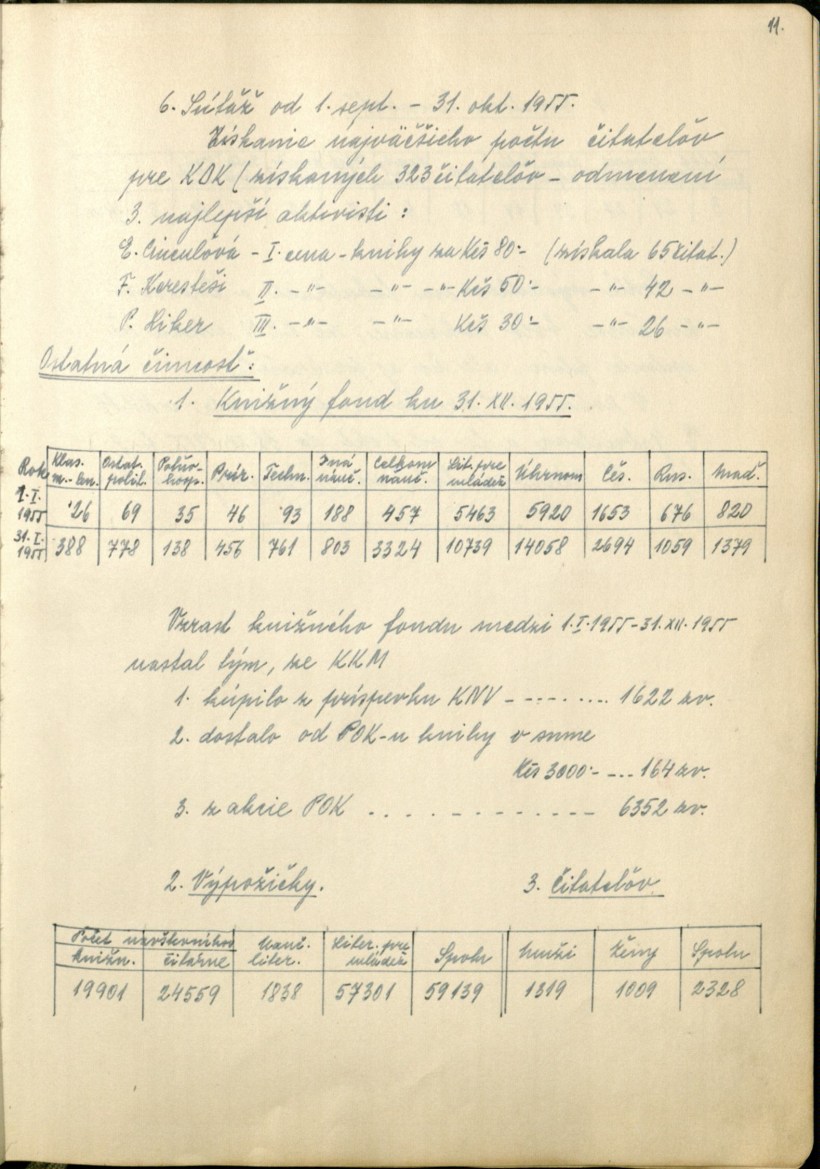 11.
6. Súťaž od 1. sept. - 31. okt. 1955.
Získanie najväčšieho počtu čitateľov
pre KOK (získaných 323 čitateľov - odmenení
3. najlepší aktivisti :
E. Cinculová - I. cena - knihy za Kčs 80·- (získala 65 čitat.)
F. Keresteši II. -"- -"- -"- Kčs 50·- -"- 42 -"-
P. Liker III. -"- -"- Kčs 30·- -"- 26 -"-
Ostatná činnosť:
1. Knižný fond ku 31. XII. 1955.
Rok Klas. m.-len. Ostat. polit. Poľno-hosp. Prír. Techn. Iná náuč. Celkom náuč. Lit. pre mládež Úhrnom Čes. Rus. Maď.
1. I. 1955 26 69 35 46 93 188 457 5463 5920 1653 676 820
31. I. 1955 388 778 138 456 761 803 3324 10739 14058 2694 1059 1379
Vzrast knižného fondu medzi 1.I.1955-31.XII.1955
nastal tým, že KKM
1. kúpilo z príspevku KNV - - - - - ... 1622 zv.
2. dostalo od POK-u knihy v sume
Kčs 3000·- - ... 164 zv.
3. z akcie POK . . . - - - - - - - 6352 zv.
2. Výpožičky. 3. Čitateľov.
Počet návštevníkov Náuč. liter. Liter. pre mládež Spolu Muži Ženy Spolu
knižn. čitárne
19901 24559 1838 57301 59139 1319 1009 2328